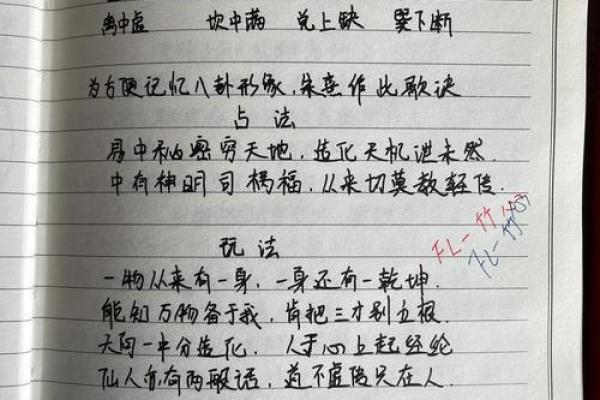 离中虚 坎中满 兑上缺 巽下断
为方便记忆八卦形象,朱熹作此歌诀
占法
易中秘密穷天地,造化天机泄未然.
中有神明司祸福,从来切莫教轻传.
FL-竹
FL-竹
玩法
一物从来有一身,一身还有一乾坤.
能知万物备于我,肯把三才别立根.
天向一中分造化,人于心上起经纶
仙人亦有两般话,道不虚传只在人.